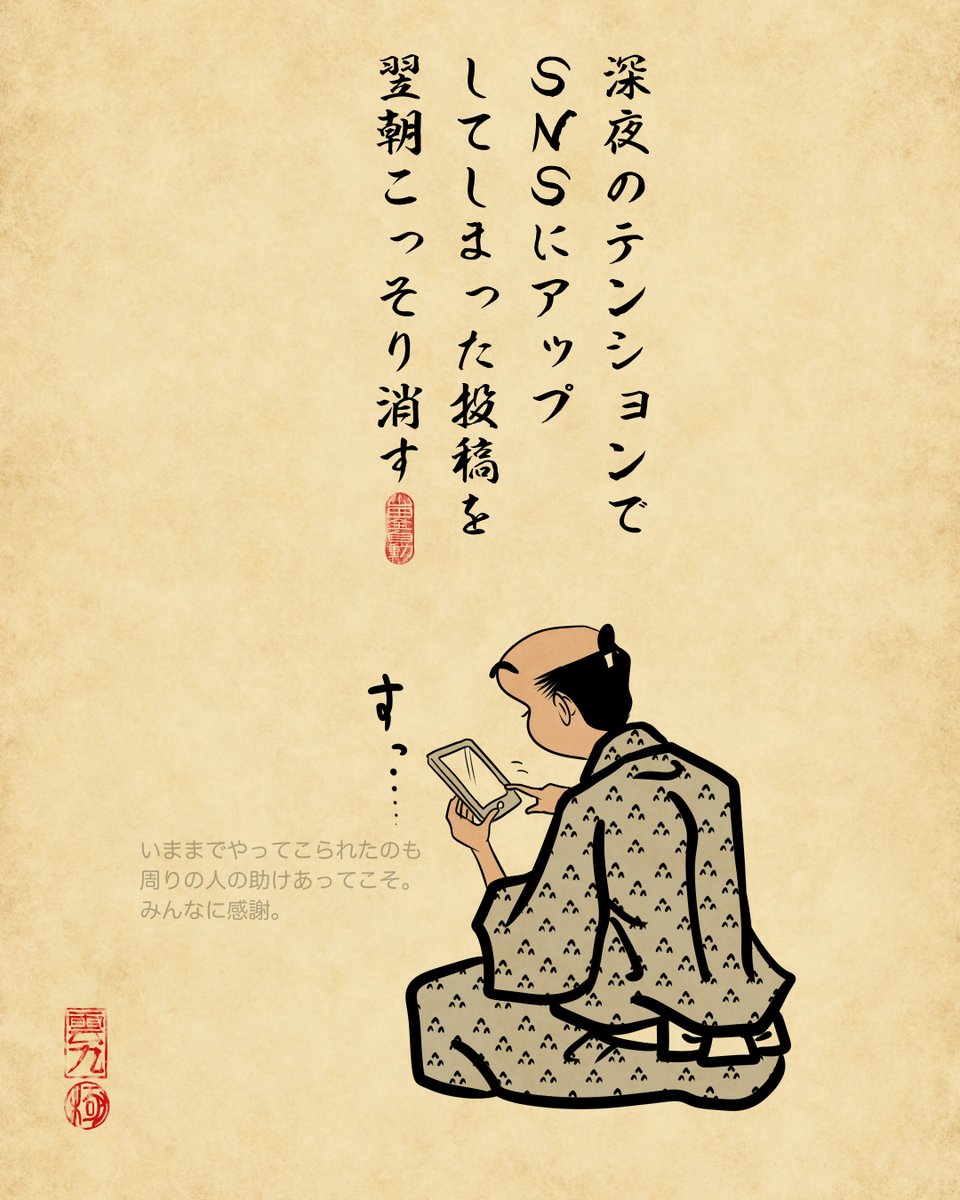 深夜のテンションで
SNSにアップ
してしまった投稿を
翌朝こっそり消す
すっ・・・・・
いままでやってこられたのも
周りの人の助けあってこそ。
みんなに感謝。